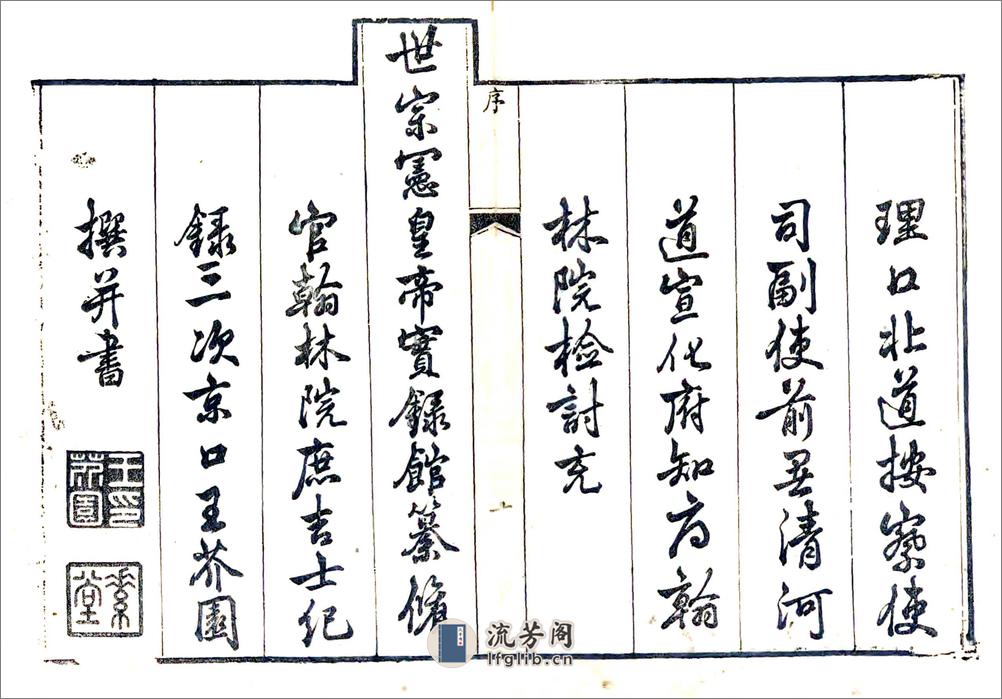 理口北道按察使
司副使前署清河
道宣化府知府翰
林院檢討充
序
世宗憲皇帝實録館纂脩
官翰林院庶吉士紀
録三次京口王芥園
撰并書
王芥園印
素堂
流芳阁
lfglib.cn